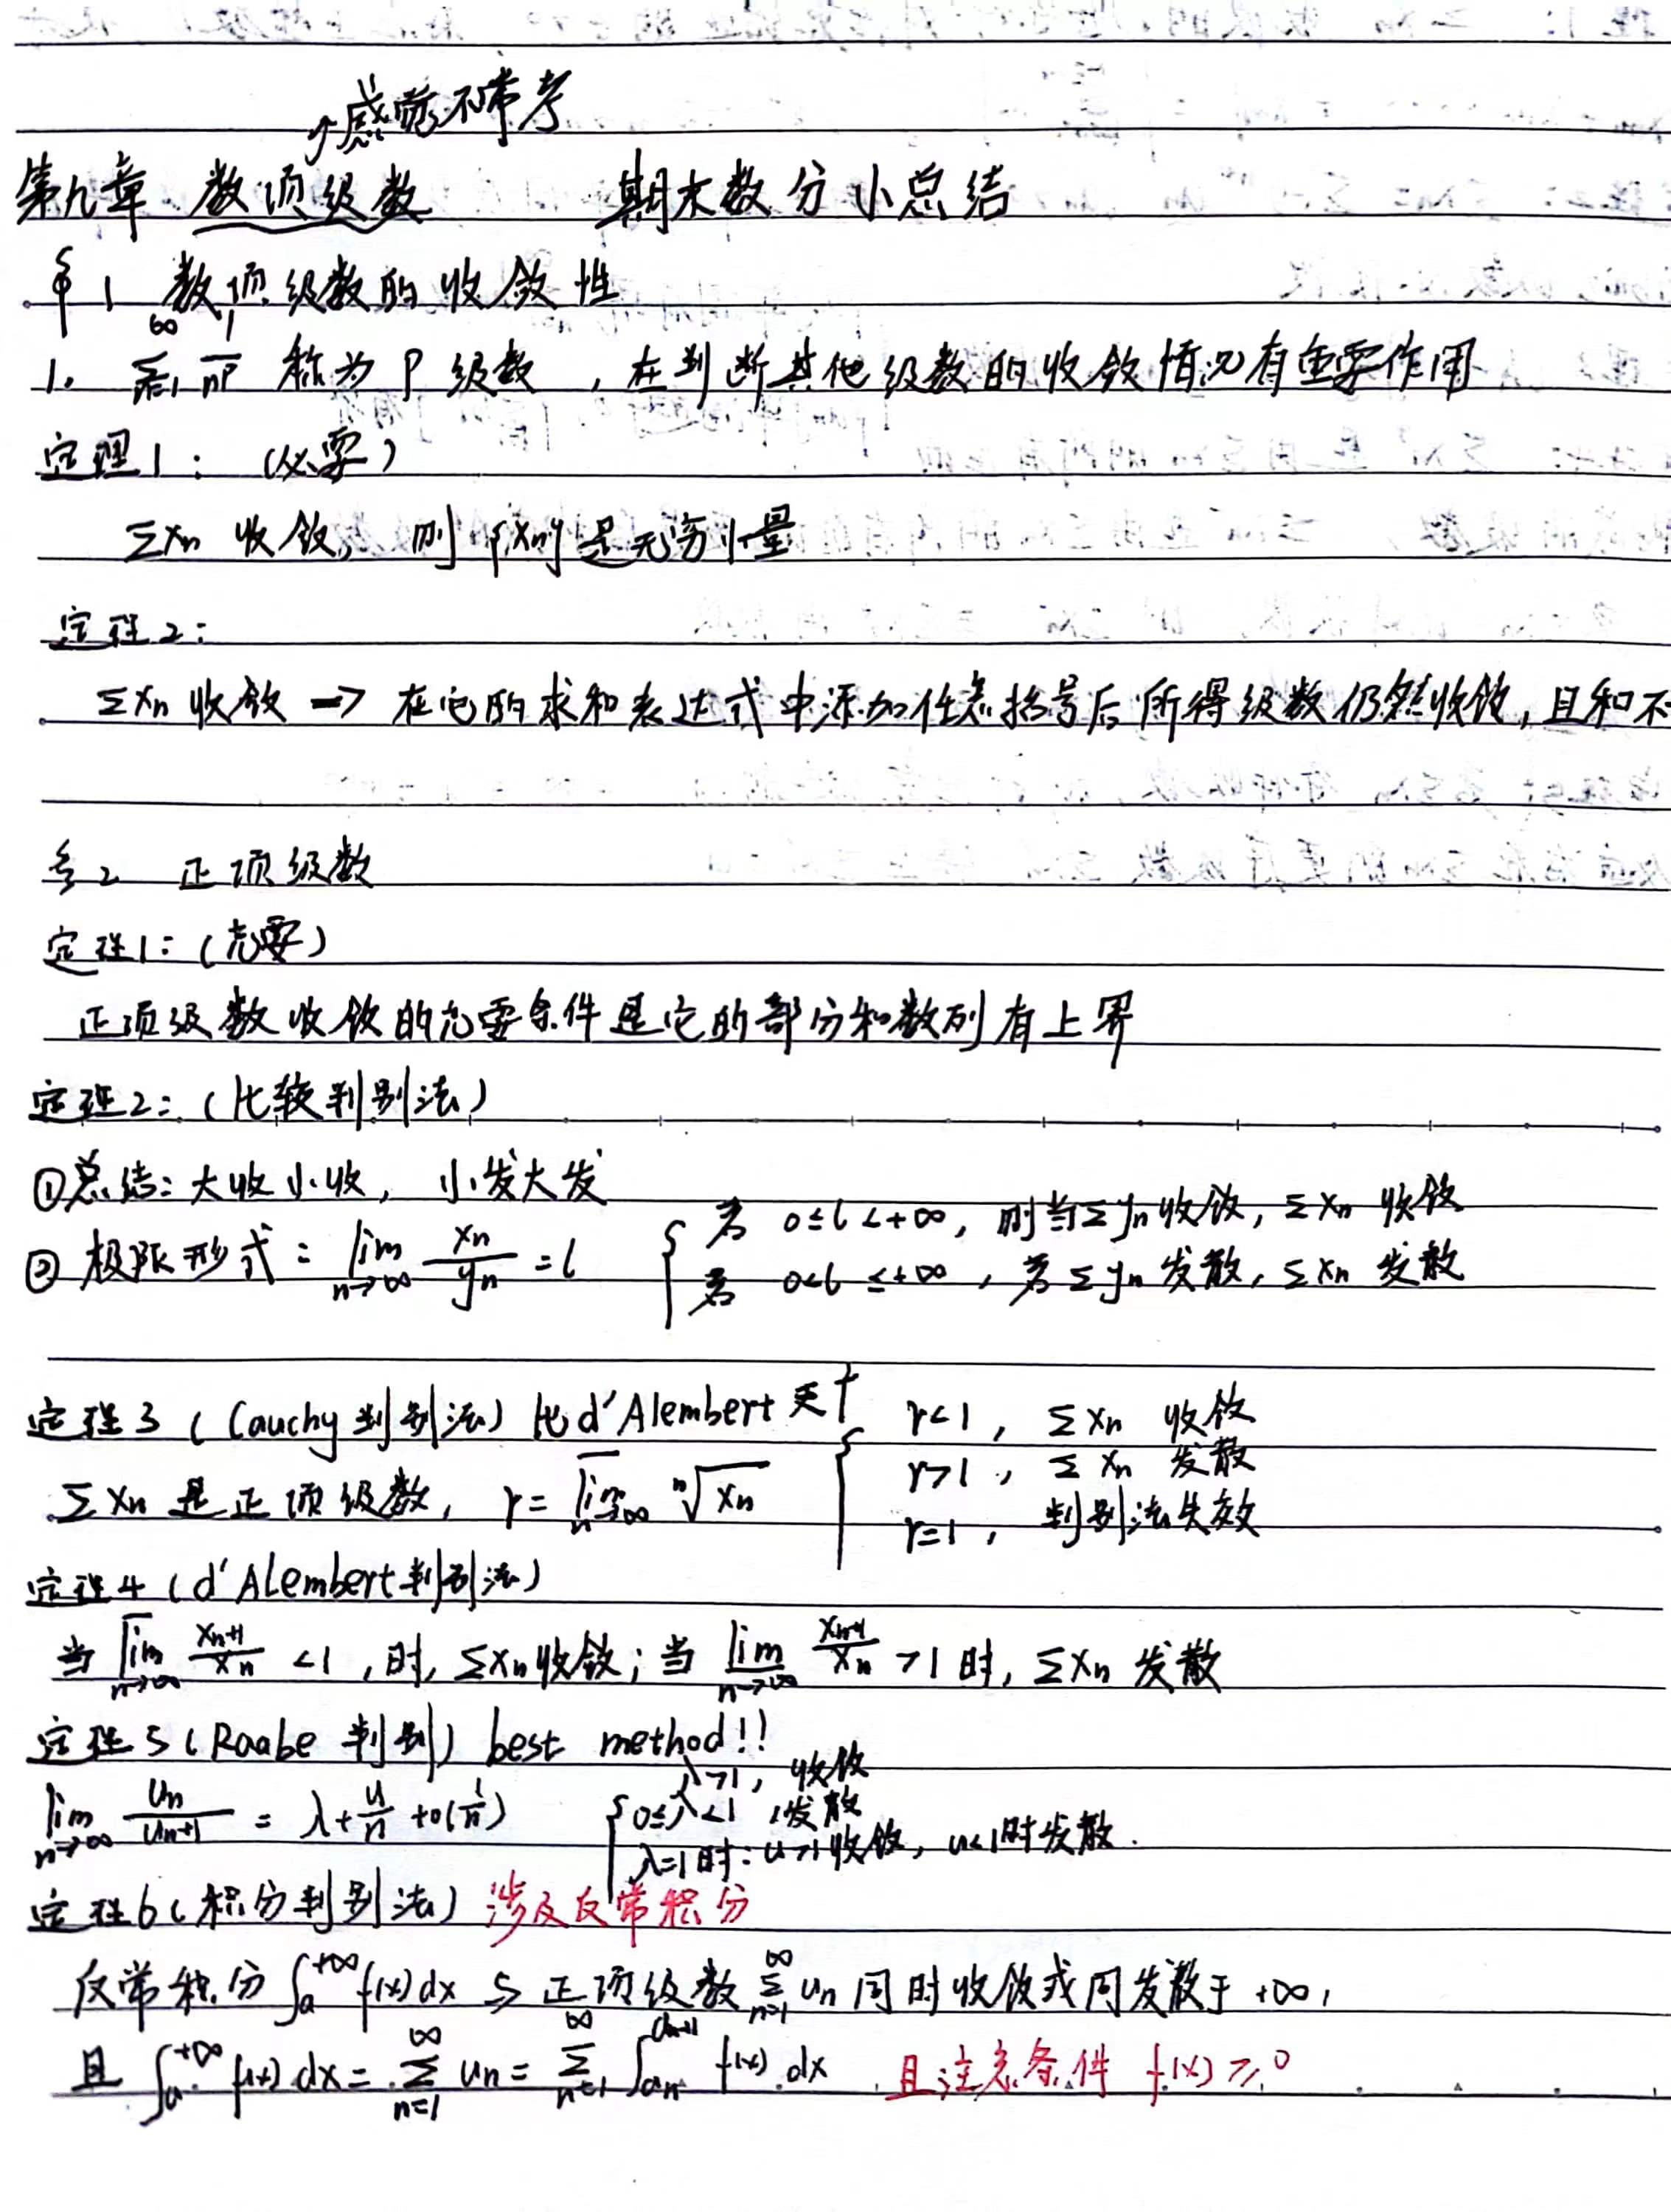 ↗感觉不常考
第九章 数项级数 期末数分小总结
§1 数项级数的收敛性
1. ∑_{n=1}^{∞} 1/n^p 称为P级数,在判断其他级数的收敛情况有重要作用
定理1:(必要)
∑xn 收敛,则{xn}是无穷小量
定理2:
∑xn 收敛 → 在它的求和表达式中添加任意括号后所得级数仍然收敛,且和不
§2 正项级数
定理1:(充要)
正项级数收敛的充要条件是它的部分和数列有上界
定理2:(比较判别法)
①总结:大收小收,小发大发
②极限形式:lim_{n→∞} xn/yn = l { 若 0≤l<+∞,则当∑yn收敛,∑xn 收敛
若 0<l≤+∞,若∑yn 发散,∑xn 发散
定理3(Cauchy判别法)比d'Alembert天下
∑xn 是正项级数,r = \overline{lim}_{n→∞} ⁿ√xn { r<1,∑xn 收敛
r>1,∑xn 发散
r=1,判别法失效
定理4(d'Alembert判别法)
当 \overline{lim}_{n→∞} x_{n+1}/xn <1,时,∑xn收敛;当 \underline{lim}_{n→∞} x_{n+1}/xn >1时,∑xn 发散
定理5(Raabe判别)best method!!
lim_{n→∞} un/u_{n+1} = λ+u/n+o(1/n) { λ>1,收敛
0≤λ<1,发散
λ=1时:u>1收敛,u<1时发散.
定理6(积分判别法)涉及反常积分
反常积分∫_a^{+∞} f(x)dx 与正项级数∑_{n=1}^{∞} un同时收敛或同发散于+∞,
且 ∫_a^{+∞} f(x)dx = ∑_{n=1}^{∞} un = ∑_{n=1}^{∞} ∫_{an}^{a_{n+1}} f(x)dx 且注意条件 f(x)≥0